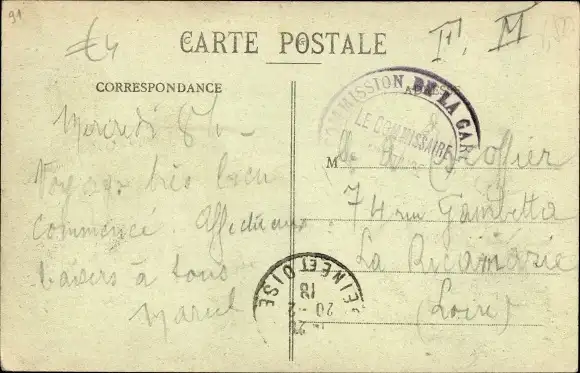 91
€4
CARTE POSTALE
F. M
CORRESPONDANCE
ADRESSE
COMMISSION DE LA GARE
LE COMMISSAIRE
Mercredi 8h
Voyage très bien
commencé. Affectueux
baisers à tous
Marcel
M
74 rue Gambetta
La Ricamarie
(Loire)
SEINE ET OISE
20-2
18